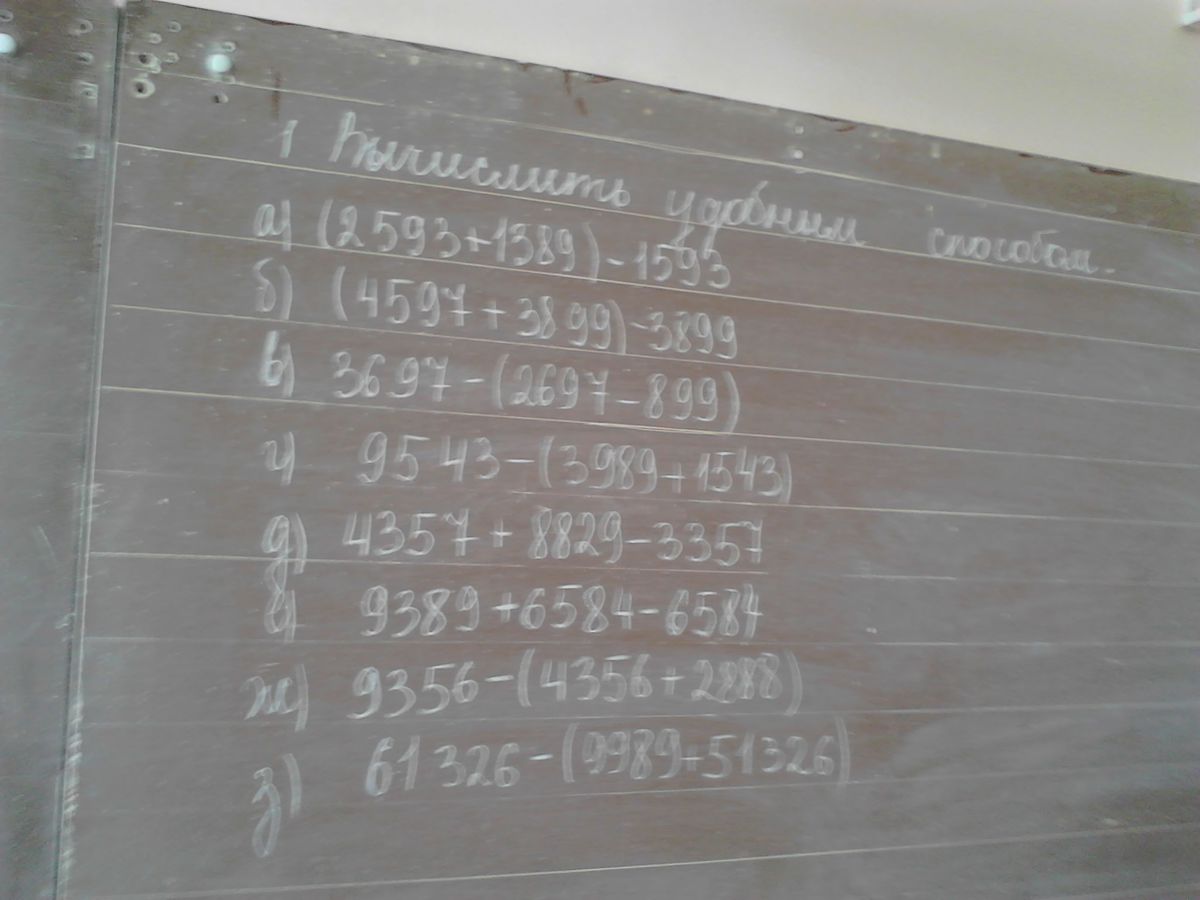 1 Вычислить удобним способом.
а) (2593+1389)-1593
б) (4597+3899)-3899
в) 3697-(2697-899)
г) 9543-(3989+1543)
д) 4357+8829-3357
е) 9389+6584-6584
ж) 9356-(4356+2888)
з) 61326-(9989+51326)